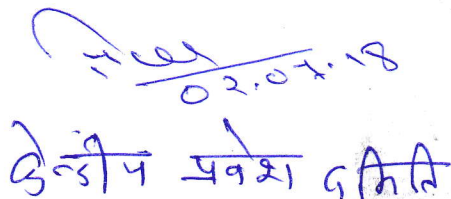 02.07.18
केन्द्रीय प्रवेश समिति